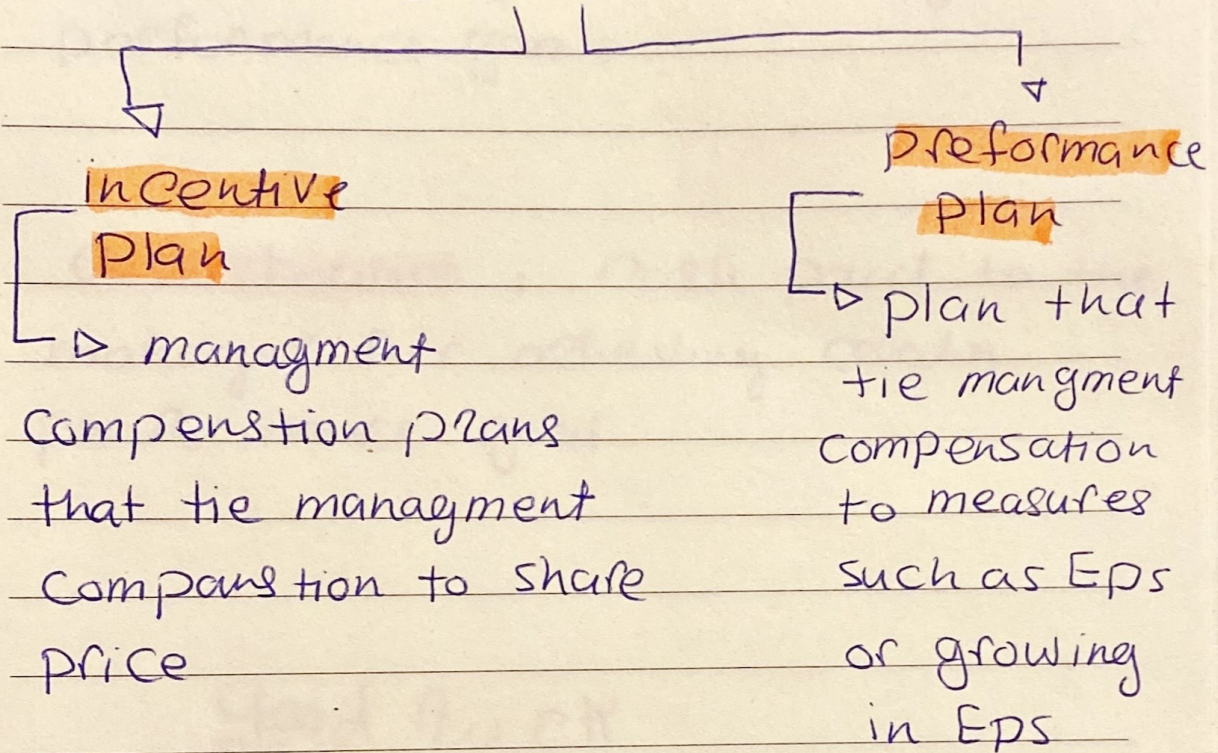 incentive
Plan
managment
Compenstion plans
that tie managment
Companstion to share
price
Preformance
Plan
plan that
tie mangment
compensation
to measures
such as Eps
or growing
in Eps